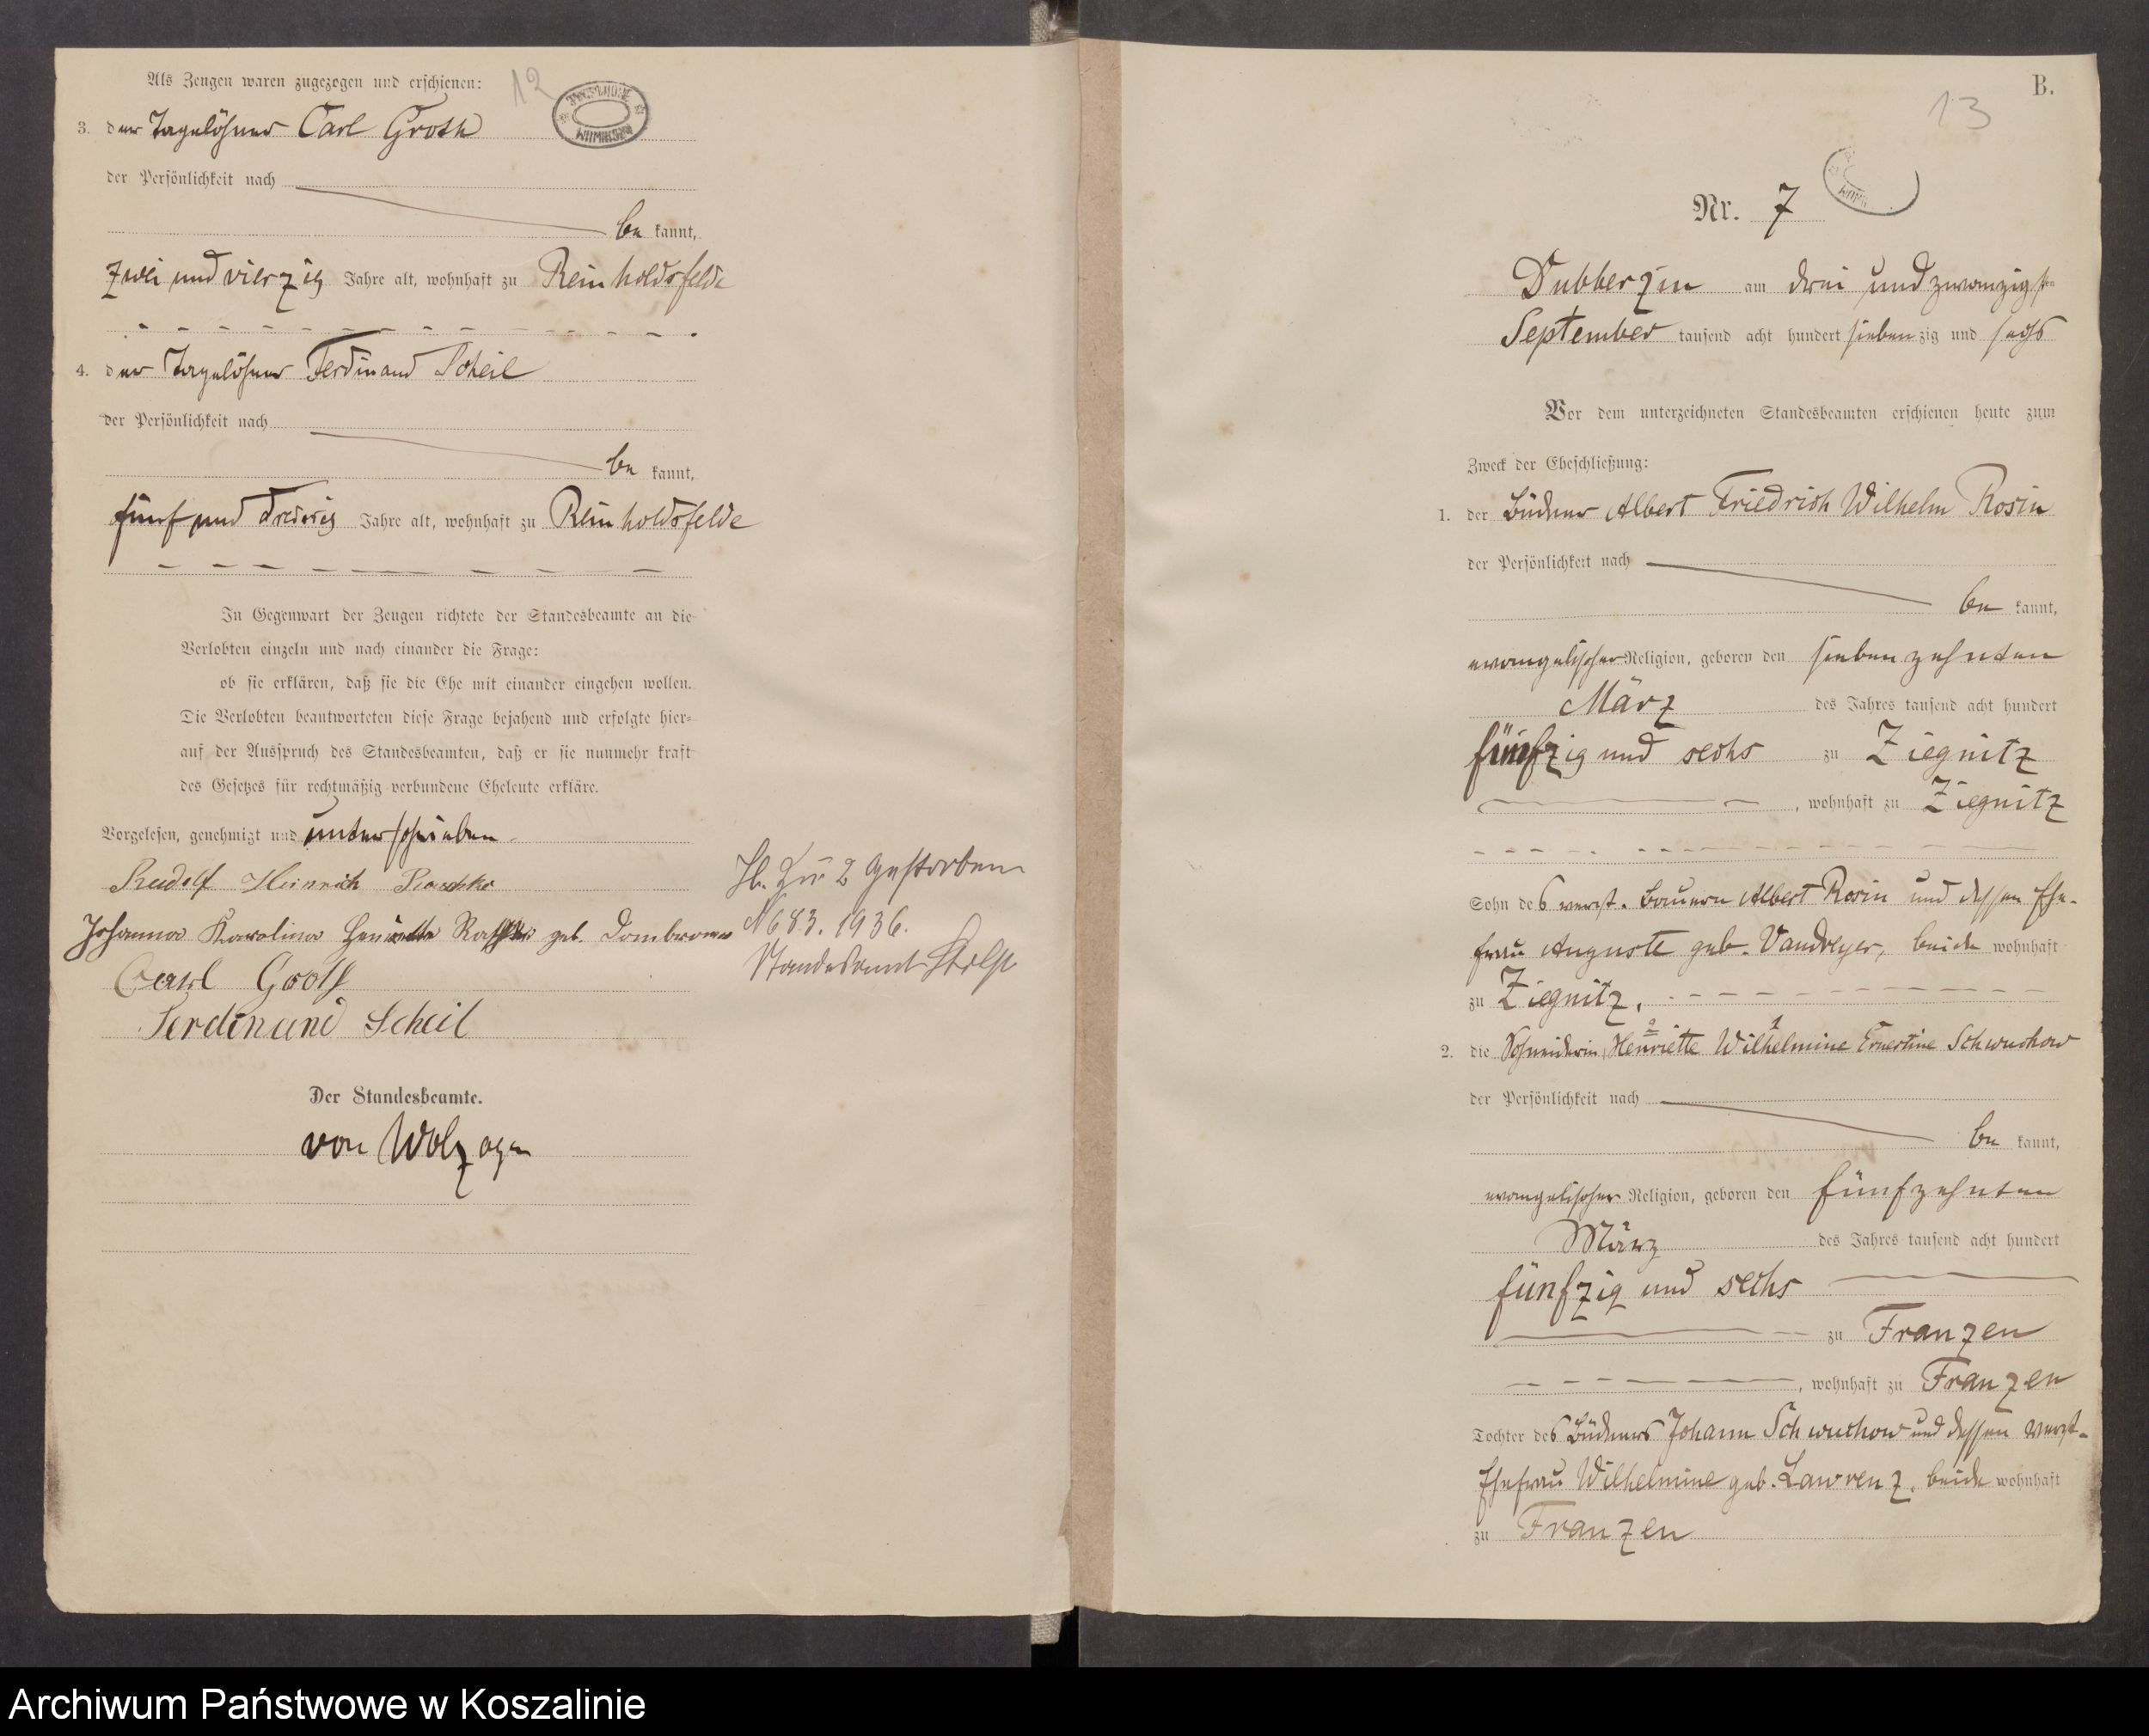 Als Zeugen waren zugezogen und erschienen:
12
3. der Tagelöhner Carl Groth
der Persönlichkeit nach
be kannt,
zwei und vierzig Jahre alt, wohnhaft zu Reinholdsfelde
4. der Tagelöhner Ferdinand Scheil
der Persönlichkeit nach
be kannt,
fünf und dreißig Jahre alt, wohnhaft zu Reinholdsfelde
In Gegenwart der Zeugen richtete der Standesbeamte an die
Verlobten einzeln und nach einander die Frage:
ob sie erklären, daß sie die Ehe mit einander eingehen wollen.
Die Verlobten beantworteten diese Frage bejahend und erfolgte hier-
auf der Ausspruch des Standesbeamten, daß er sie nunmehr kraft
des Gesetzes für rechtmäßig verbundene Eheleute erkläre.
Vorgelesen, genehmigt und unterschrieben.
Rudolf Heinrich
Johanna Karoline Henriette geb.
Carl Groth
Ferdinand Scheil
zu 2 gestorben
N 683. 1936.
Standesamt Stolp
Der Standesbeamte.
von Wolzogen
B.
13
Nr. 7
Dubberzin am drei und zwanzigsten
September tausend acht hundert siebenzig und sechs
Vor dem unterzeichneten Standesbeamten erschienen heute zum
Zweck der Eheschließung:
1. der Büdner Albert Friedrich Wilhelm Rosin
der Persönlichkeit nach
be kannt,
evangelischer Religion, geboren den siebenzehnten
März des Jahres tausend acht hundert
fünfzig und sechs zu Ziegnitz
, wohnhaft zu Ziegnitz
Sohn des verst. Bauern Albert Rosin und dessen Ehe-
frau Auguste geb. beide wohnhaft
zu Ziegnitz.
2. die Schneiderin Henriette Wilhelmine Ernestine Schwuchow
der Persönlichkeit nach
be kannt,
evangelischer Religion, geboren den fünfzehnten
März des Jahres tausend acht hundert
fünfzig und sechs
zu Franzen
, wohnhaft zu Franzen
Tochter des Büdners Johann Schwuchow und dessen verst.
Ehefrau Wilhelmine geb. Lawrenz, beide wohnhaft
zu Franzen
Archiwum Państwowe w Koszalinie